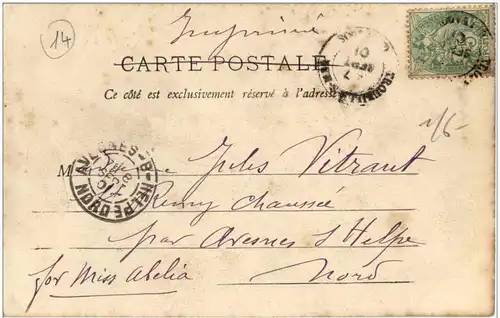 Imprimé
14
CARTE POSTALE
Ce côté est exclusivement réservé à l'adresse
1/6-
M Jules Vitrant
Remy Chaussée
par Avesnes s/Helpe
Nord
for Miss Abelia
AVESNES-S-HELPE
NORD